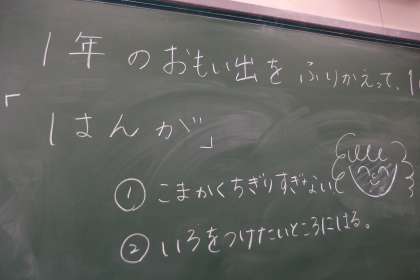 1年のおもい出をふりかえって、
「はんが」
① こまかくちぎりすぎない
② いろをつけたいところにはる。